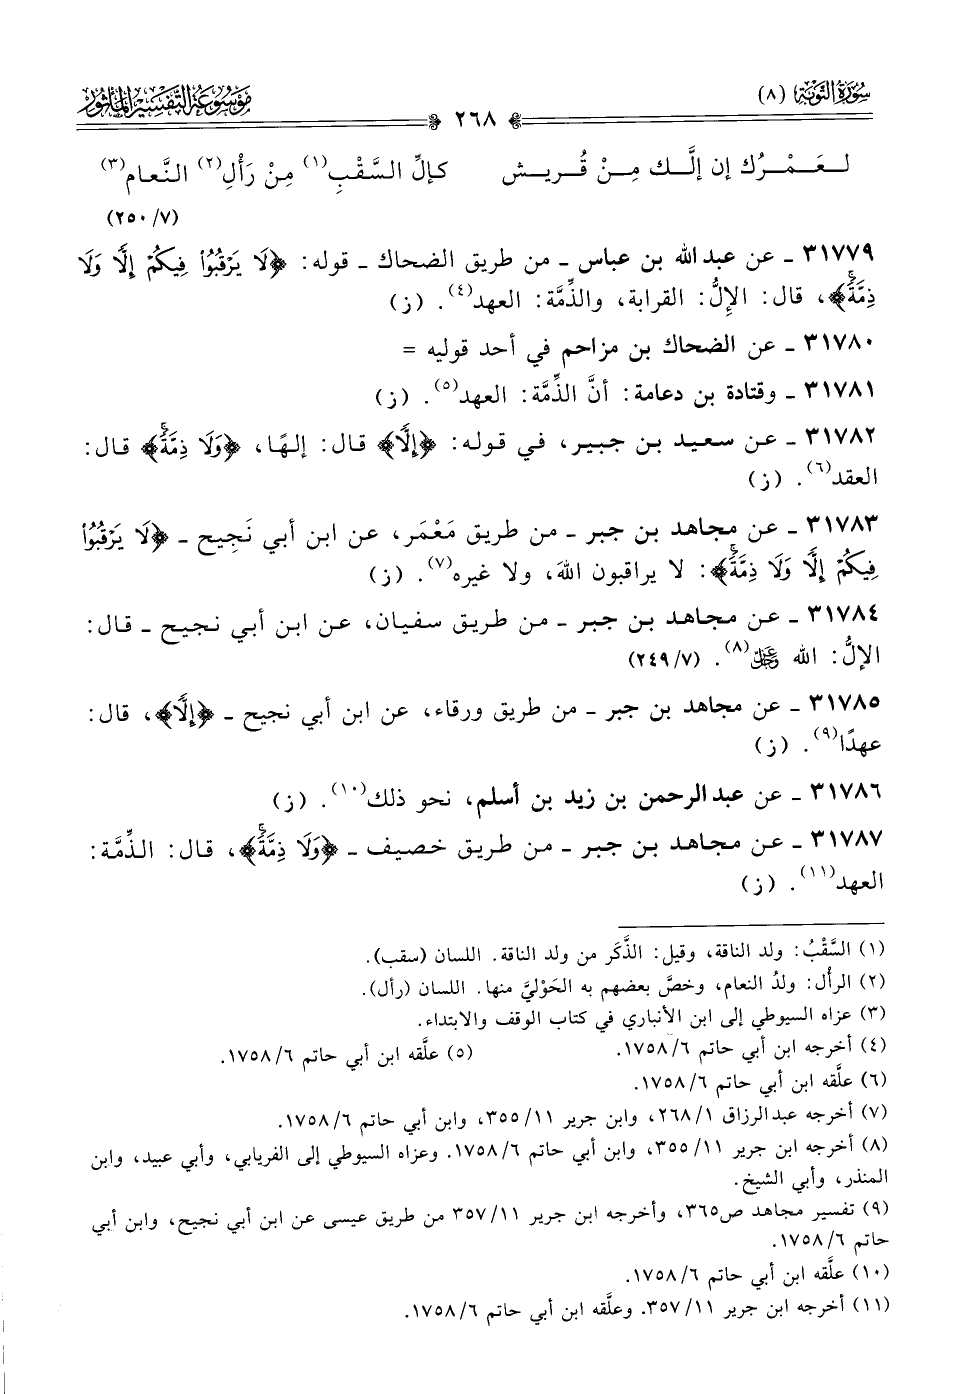 سورة التوبة (٨)
٢٦٨
موسوعة التفسير المأثور
لعَمْرُك إن إلَّك مِنْ قُريش كإلِّ السَّقْبِ(١) مِنْ رَأْلِ(٢) النَّعام(٣)
(٧/ ٢٥٠)
٣١٧٧٩ ـ عن عبد الله بن عباس ـ من طريق الضحاك ـ قوله: ﴿لَا يَرْقُبُوا۟ فِيكُمْ إِلًّا وَلَا
ذِمَّةً ۚ﴾، قال: الإِلُّ: القرابة، والذِّمَّة: العهد(٤). (ز)
٣١٧٨٠ ـ عن الضحاك بن مزاحم في أحد قوليه =
٣١٧٨١ ـ وقتادة بن دعامة: أنَّ الذِّمَّة: العهد(٥). (ز)
٣١٧٨٢ ـ عن سعيد بن جبير، في قوله: ﴿إِلًّا﴾ قال: إلهًا، ﴿وَلَا ذِمَّةً ۚ﴾ قال:
العقد(٦). (ز)
٣١٧٨٣ ـ عن مجاهد بن جبر ـ من طريق مَعْمَر، عن ابن أبي نَجِيح ـ ﴿لَا يَرْقُبُوا۟
فِيكُمْ إِلًّا وَلَا ذِمَّةً ۚ﴾: لا يراقبون اللهَ، ولا غيره(٧). (ز)
٣١٧٨٤ ـ عن مجاهد بن جبر ـ من طريق سفيان، عن ابن أبي نجيح ـ قال:
الإلُّ: الله عز وجل(٨). (٧/ ٢٤٩)
٣١٧٨٥ ـ عن مجاهد بن جبر ـ من طريق ورقاء، عن ابن أبي نجيح ـ ﴿إِلًّا﴾، قال:
عهدًا(٩). (ز)
٣١٧٨٦ ـ عن عبد الرحمن بن زيد بن أسلم، نحو ذلك(١٠). (ز)
٣١٧٨٧ ـ عن مجاهد بن جبر ـ من طريق خصيف ـ ﴿وَلَا ذِمَّةً ۚ﴾، قال: الذِّمَّة:
العهد(١١). (ز)
(١) السَّقْبُ: ولد الناقة، وقيل: الذَّكَر من ولد الناقة. اللسان (سقب).
(٢) الرأل: ولدُ النعام، وخصَّ بعضهم به الحَوْليَّ منها. اللسان (رأل).
(٣) عزاه السيوطي إلى ابن الأنباري في كتاب الوقف والابتداء.
(٤) أخرجه ابن أبي حاتم ٦/ ١٧٥٨. (٥) علَّقه ابن أبي حاتم ٦/ ١٧٥٨.
(٦) علَّقه ابن أبي حاتم ٦/ ١٧٥٨.
(٧) أخرجه عبد الرزاق ١/ ٢٦٨، وابن جرير ١١/ ٣٥٥، وابن أبي حاتم ٦/ ١٧٥٨.
(٨) أخرجه ابن جرير ١١/ ٣٥٥، وابن أبي حاتم ٦/ ١٧٥٨. وعزاه السيوطي إلى الفريابي، وأبي عبيد، وابن
المنذر، وأبي الشيخ.
(٩) تفسير مجاهد ص٣٦٥، وأخرجه ابن جرير ١١/ ٣٥٧ من طريق عيسى عن ابن أبي نجيح، وابن أبي
حاتم ٦/ ١٧٥٨.
(١٠) علَّقه ابن أبي حاتم ٦/ ١٧٥٨.
(١١) أخرجه ابن جرير ١١/ ٣٥٧. وعلَّقه ابن أبي حاتم ٦/ ١٧٥٨.